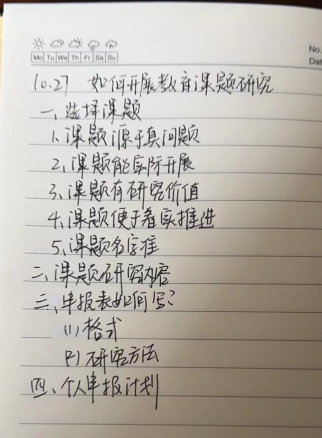 Mo Tu We Th Fr Sa Su
No.
Dat
10.27 如何开展教育课题研究
一、选择课题
1、课题源于真问题
2、课题能实际开展
3、课题有研究价值
4、课题便于着实推进
5、课题名字准
二、课题研究内容
三、申报表如何写？
(1) 格式
(2) 研究方法
四、个人申报计划